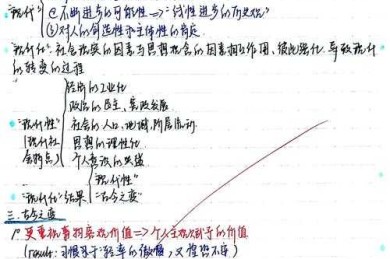 "现代" ②不断进步的可能性 => "线性进步的历史观"
③对人的创造性和主体性的肯定
"现代化": 社会现实的因素与思想观念的因素相互作用, 彼此强化, 导致现代的转变的过程
经济的工业化
政治的民主, 党政发展
"现代性" 社会的人口, 地域, 阶层流动
(现代社会特点) 思想的理性化
个人意识的
"现代化"结果 "现代性"
"古今之变"
三. 古今之变
更重视事物实效价值 => 个人主观赋予的价值
(result: 习惯于"轻率的傲慢", 又惶惶不安)